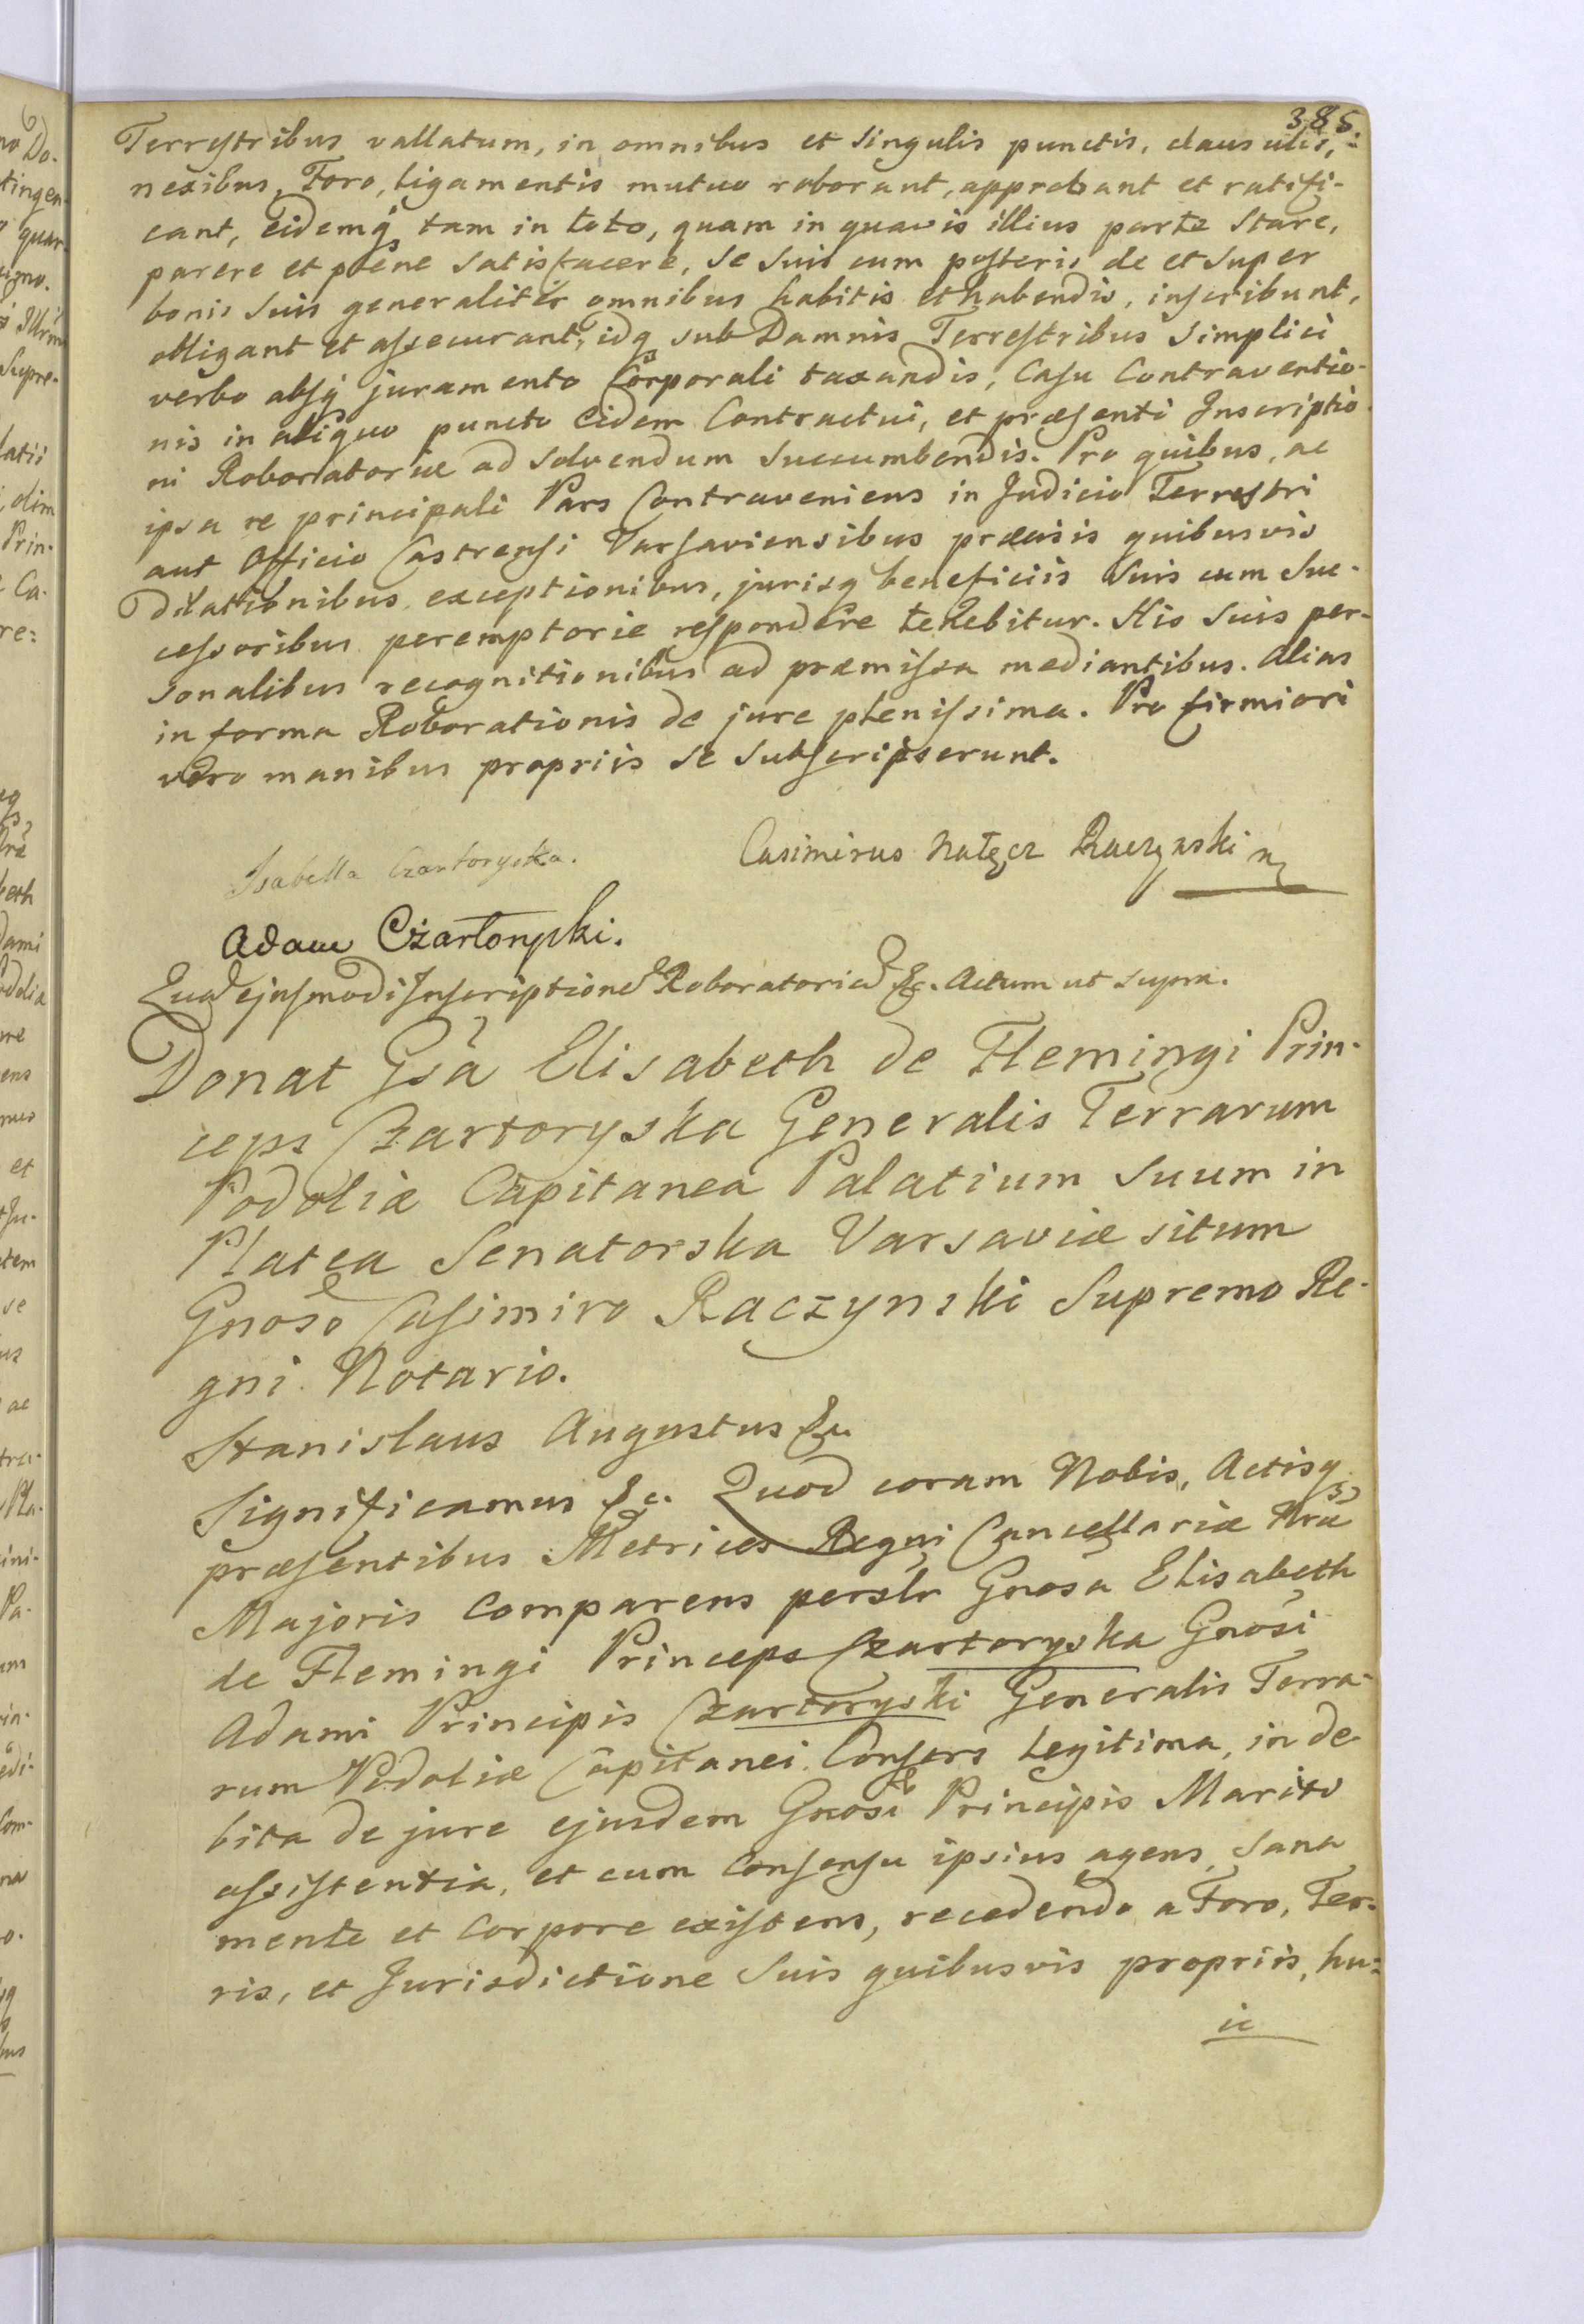 385.
Terrestribus vallatum, in omnibus et singulis punctis, clausulis,
nexibus, Foro, ligamentis mutuo roborant, approbant et ratifi-
cant, Eidemq́ tam in toto, quam in quavis illius parte Stare,
parere et plene Satisfacere, Se Suis cum posteris de et Super
bonis Suis generaliter omnibus habitis et habendis, inscribunt,
obligant et assecurant, idq sub Damnis Terrestribus Simplici
verbo absq juramento Corporali taxandis, Casu Contraventio-
nis in aliquo puncto Eidem Contractui, et præsenti Inscriptio-
ni Roboratoriæ ad Solvendum Succumbendis. Pro quibus, ac
ipsa re principali Pars Contraveniens in Judicio Terrestri
aut Officio Castrensi Varsaviensibus præcisis quibusvis
Dilationibus, exceptionibus, jurisq beneficiis Suis cum Suc-
cessoribus peremptorie respondere tenebitur. His Suis per-
sonalibus recognitionibus ad præmissa mediantibus. Alias
in forma Roborationis de jure plenissima. Pro firmiori
vero manibus propriis Se Subscripserunt.
Isabella Czartoryska.
Casimirus Nałęcz Raczynski
Adam Czartoryski.
Quod ejusmodi Inscriptione Roboratoria &c. Actum ut Supra.
Donat Gsa Elisabeth de Flemingi Prin-
ceps Czartoryska Generalis Terrarum
Podoliæ Capitanea Palatium Suum in
Platea Senatorska Varsaviæ situm
Gnoso Casimiro Raczynski Supremo Re-
gni Notario.
Stanislaus Augustus &c.
Significamus &c. Quod coram Nobis, Actisq
præsentibus Metrices Regni Cancellariæ Nræ
Majoris Comparens persłr Gnosa Elisabeth
de Flemingi Princeps Czartoryska Gnosi
Adami Principis Czartoryski Generalis Terra-
rum Podoliæ Capitanei Consors Legitima, in de
bita de jure ejusdem Gnosi Principis Mariti
assistentia, et cum Consensu ipsius agens, Sana
mente et Corpore existens, recedendo a Foro, Ter-
ris, et Jurisdictione Suis quibusvis propriis, hu-
ic